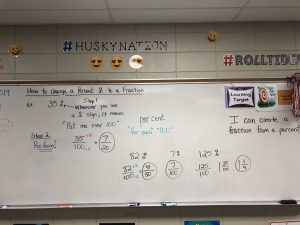 #HUSKYNATION
#ROLLTID
How to change a Percent % to a Fraction
Ex. 35%
Step 1
Whenever you see
a % sign, it means
"Put me over 100"
per cent
"for each" "100"
Step 2
Reduce!
35 ÷5
100 ÷5
7
20
82% 7% 125%
82 ÷2
100 ÷2
41
50
7
100
125
100
1 25
100
1 1
4
Learning
Target
I can create a
fraction from a percent